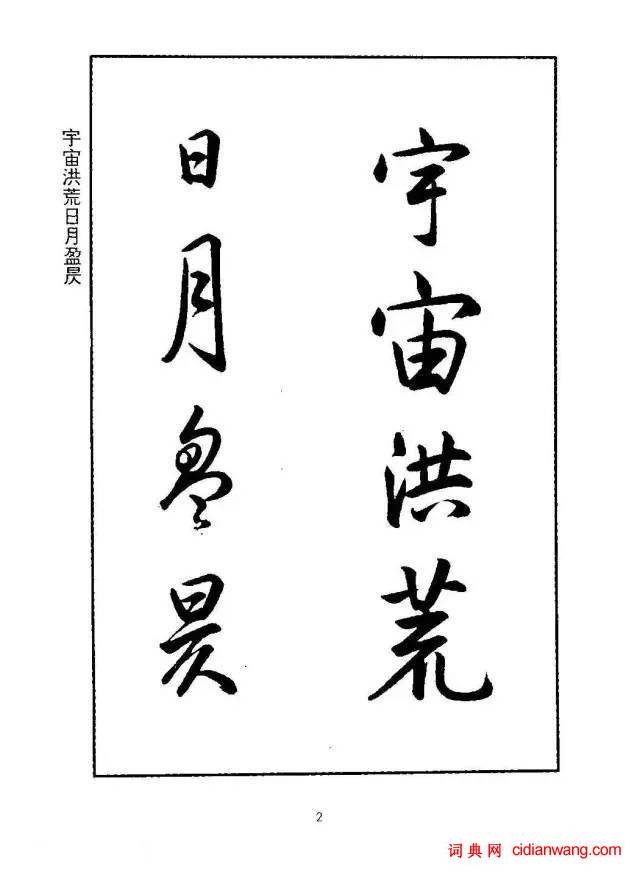 宇宙洪荒
日月盈昃
宇宙洪荒日月盈昃
2
词典网 cidianwang.com